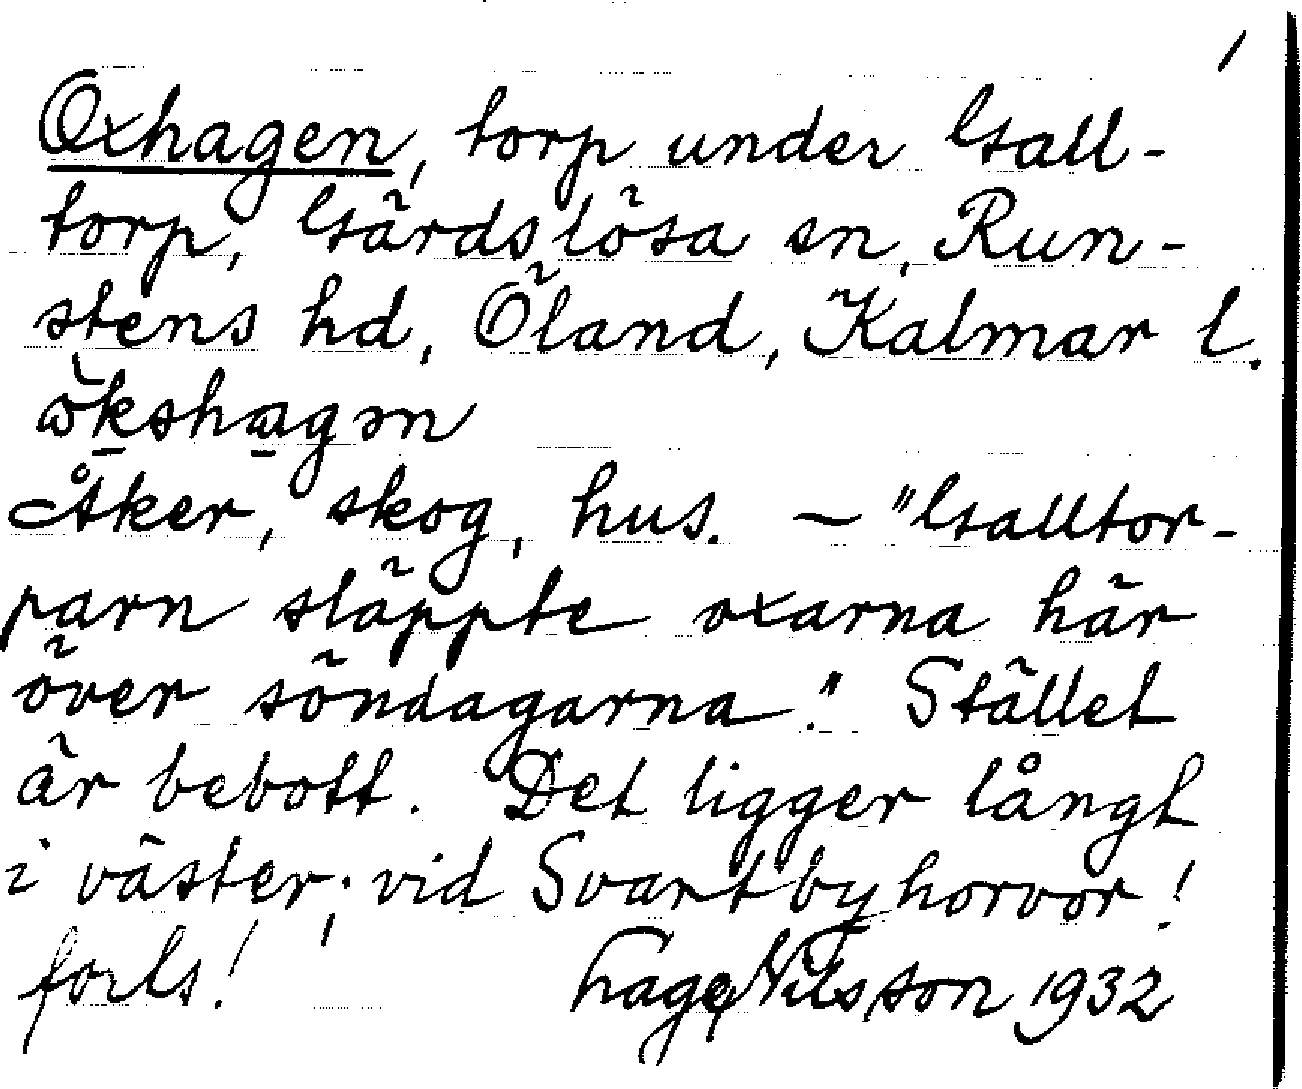 Oxhagen, torp under Gall-
torp, Gärdslösa sn, Run-
stens hd, Öland, Kalmar l.
ò̀kshagən
Åker, skog, hus. — "Galltor-
parn släppte oxarna här
över söndagarna." Stället
är bebott. Det ligger långt
i väster, vid Svartbyhorvor!
forts! Hage Nilsson 1932